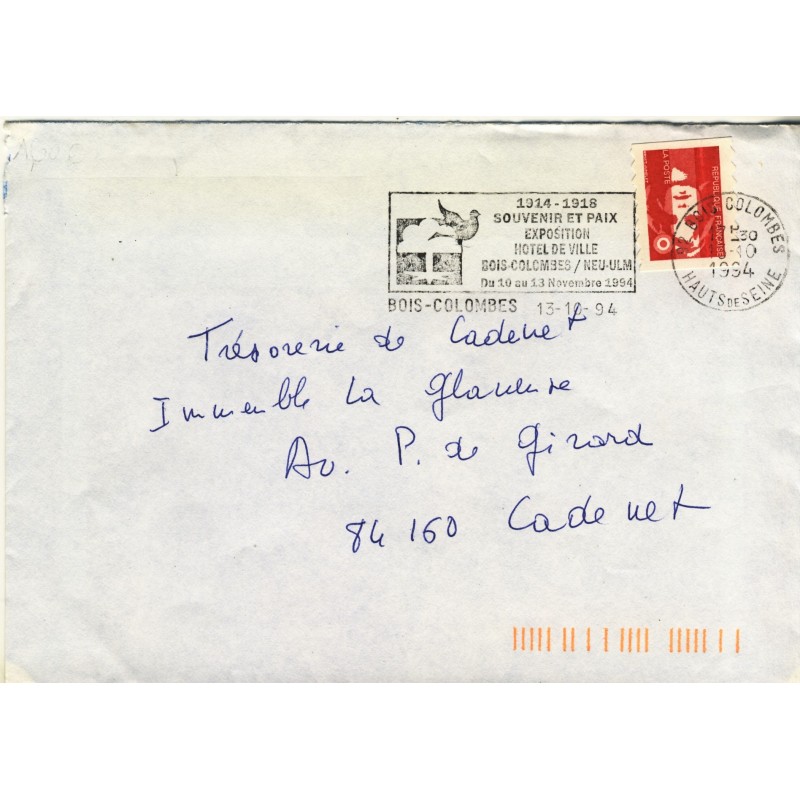 1914-1918
SOUVENIR ET PAIX
EXPOSITION
HOTEL DE VILLE
BOIS-COLOMBES / NEU-ULM
Du 10 au 13 Novembre 1994
BOIS-COLOMBES 13-10-94
REPUBLIQUE FRANCAISE
LA POSTE
92 BOIS-COLOMBES
30
10
1994
HAUTS DE SEINE
Trésorerie de Cadenet
Immeuble La Glaneuse
Av. P. de Girard
84 160 Cadenet